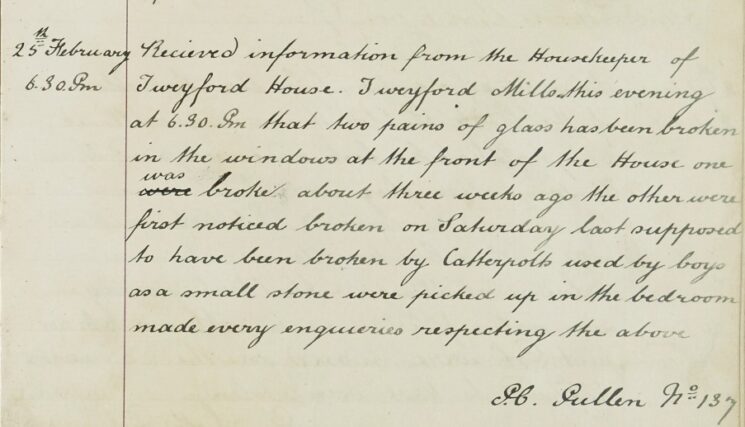 25th February Recieved information from the Housekeeper of
6.30. Pm Tweyford House. Tweyford Mills this evening
at 6.30. Pm that two pains of glass has been broken
in the windows at the front of the House one
was
were broke about three weeks ago the other were
first noticed broken on Saturday last supposed
to have been broken by Catterpolts used by boys
as a small stone were picked up in the bedroom
made every enquieries respecting the above
P.C. Pullen No. 137